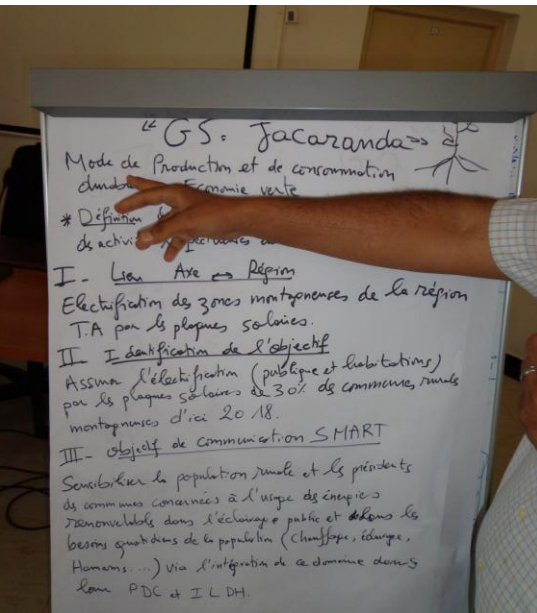 "G5: Jacaranda"
Mode de Production et de consommation
Economie verte
* Définition
ds activi
I- Lien Axe ↔ Région
Electrification des zones montagneuses de la région
T.A par ls plaques solaires.
II- Identification de l'objectif
Assurer l'électrification (publique et habitations)
par ls plaques solaires de 30% ds communes rurales
montagneuses d'ici 2018.
III- objectif de communication SMART
Sensibiliser la population rurale et ls présidents
ds communes concernées à l'usage ds énergies
renouvelables dans l'éclairage public et dans ls
besoins quotidiens de la population (chauffage, éclairage,
Hamams....) via l'intégration de ce domaine dans
leur PDC et ILDH.